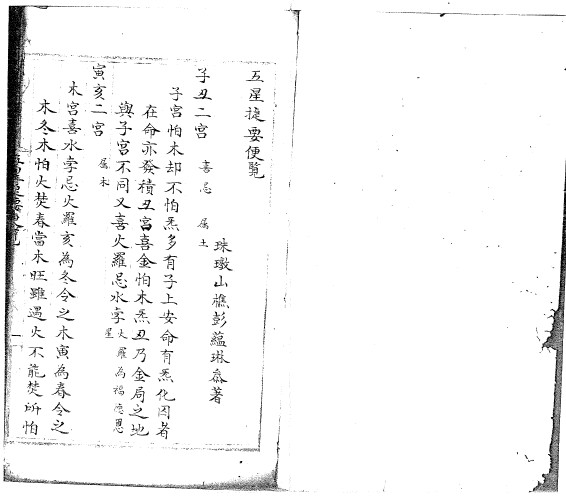 五星捷要便覽
珠墩山樵彭蘊琳氶著
子丑二宮 喜忌 属土
子宮怕木却不怕炁多有子上安命有炁化因者
在命亦發積丑宮喜金怕木炁丑乃金局之地
與子宮不同又喜火羅忌水孛火羅為福德恩星
寅亥二宮 属木
木宮喜水孛忌火羅亥為冬令之木寅為春令之
木冬木怕火焚春當木旺雖遇火不能焚所怕